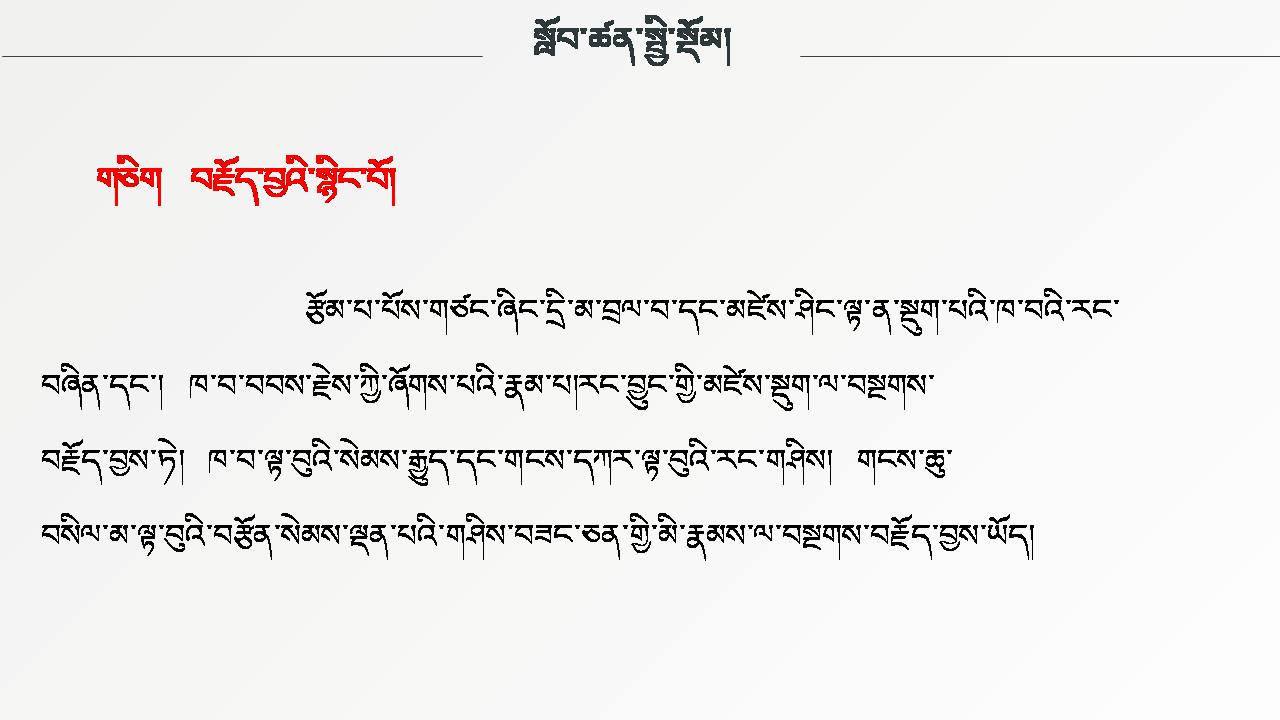 སློབ་ཚན་སྤྱི་སྡོམ།
གཅིག བརྗོད་བྱའི་སྙིང་པོ།
རྩོམ་པ་པོས་གཙང་ཞིང་དྲི་མ་བྲལ་བ་དང་མཛེས་ཤིང་ལྟ་ན་སྡུག་པའི་ཁ་བའི་རང་
བཞིན་དང་། ཁ་བ་བབས་རྗེས་ཀྱི་ཞོགས་པའི་རྣམ་པ།རང་བྱུང་གྱི་མཛེས་སྡུག་ལ་བསྔགས་
བརྗོད་བྱས་ཏེ། ཁ་བ་ལྟ་བུའི་སེམས་རྒྱུད་དང་གངས་དཀར་ལྟ་བུའི་རང་གཤིས། གངས་ཆུ་
བསིལ་མ་ལྟ་བུའི་བརྩོན་སེམས་ལྡན་པའི་གཤིས་བཟང་ཅན་གྱི་མི་རྣམས་ལ་བསྔགས་བརྗོད་བྱས་ཡོད།